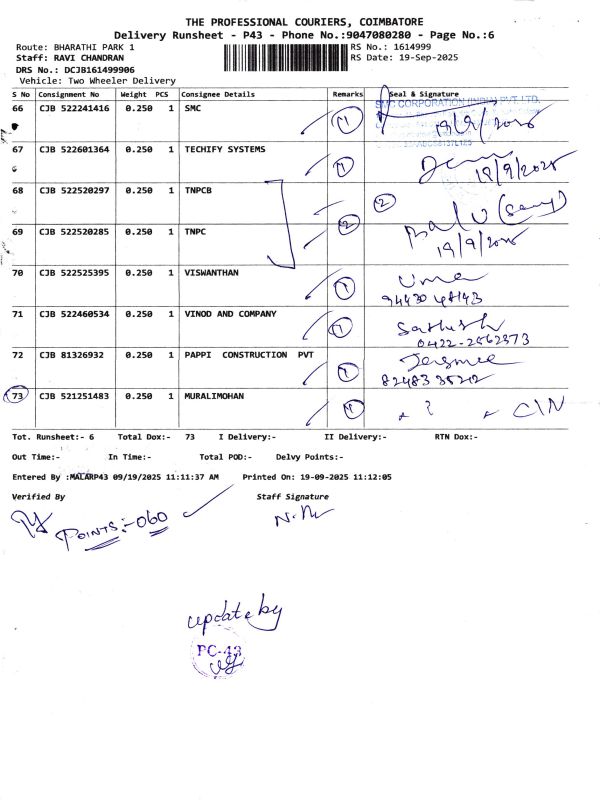 THE PROFESSIONAL COURIERS, COIMBATORE
Delivery Runsheet - P43 - Phone No.:9047080280 - Page No.:6
Route: BHARATHI PARK 1 RS No.: 1614999
Staff: RAVI CHANDRAN RS Date: 19-Sep-2025
DRS No.: DCJB161499906
Vehicle: Two Wheeler Delivery
S No Consignment No Weight PCS Consignee Details Remarks Seal & Signature
66 CJB 522241416 0.250 1 SMC 1 SMC CORPORATION (INDIA) PVT. LTD.
19/9/2025
67 CJB 522601364 0.250 1 TECHIFY SYSTEMS 1
19/9/2025
68 CJB 522520297 0.250 1 TNPCB 2
69 CJB 522520285 0.250 1 TNPC 2
19/9/2025
70 CJB 522525395 0.250 1 VISWANTHAN 1 Uma
71 CJB 522460534 0.250 1 VINOD AND COMPANY 1 Sathish
0422-2562373
72 CJB 81326932 0.250 1 PAPPI CONSTRUCTION PVT 1
73 CJB 521251483 0.250 1 MURALIMOHAN 1 ? C/N
Tot. Runsheet:- 6 Total Dox:- 73 I Delivery:- II Delivery:- RTN Dox:-
Out Time:- In Time:- Total POD:- Delvy Points:-
Entered By :MALARP43 09/19/2025 11:11:37 AM Printed On: 19-09-2025 11:12:05
Verified By Staff Signature
POINTS:-060
update by
PC-43